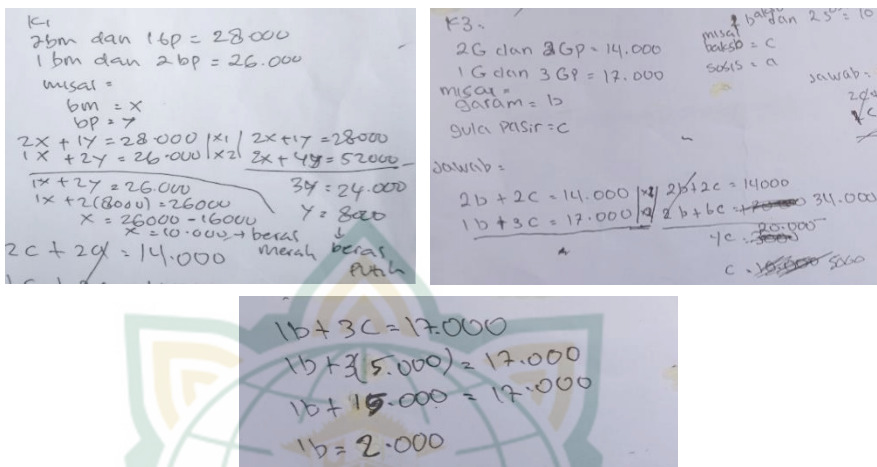 K1
2bm dan 1bp = 28.000
1 bm dan 2bp = 26.000
misal =
bm = x
bp = y
2x + 1y = 28.000 | x1 | 2x + 1y = 28000
1x + 2y = 26.000 | x2 | 2x + 4y = 52000
1x + 2y = 26.000
3y = 24.000
1x + 2(8000) = 26000
y = 8000
x = 26000 - 16000
x = 10.000 → beras merah
beras putih
2c + 2a = 14.000
K3.
2G dan 2Gp = 14.000
1 G dan 3 GP = 17.000
misal =
garam = b
gula pasir = c
Jawab =
2b + 2c = 14.000 | 2b + 2c = 14000
1b + 3c = 17.000 | 2b + 6c = 34.000
4c = 20.000
c = 5000
dan
misal
bakso = c
sosis = a
Jawab =
1b + 3c = 17.000
1b + 3(5.000) = 17.000
1b + 15.000 = 17.000
1b = 2.000